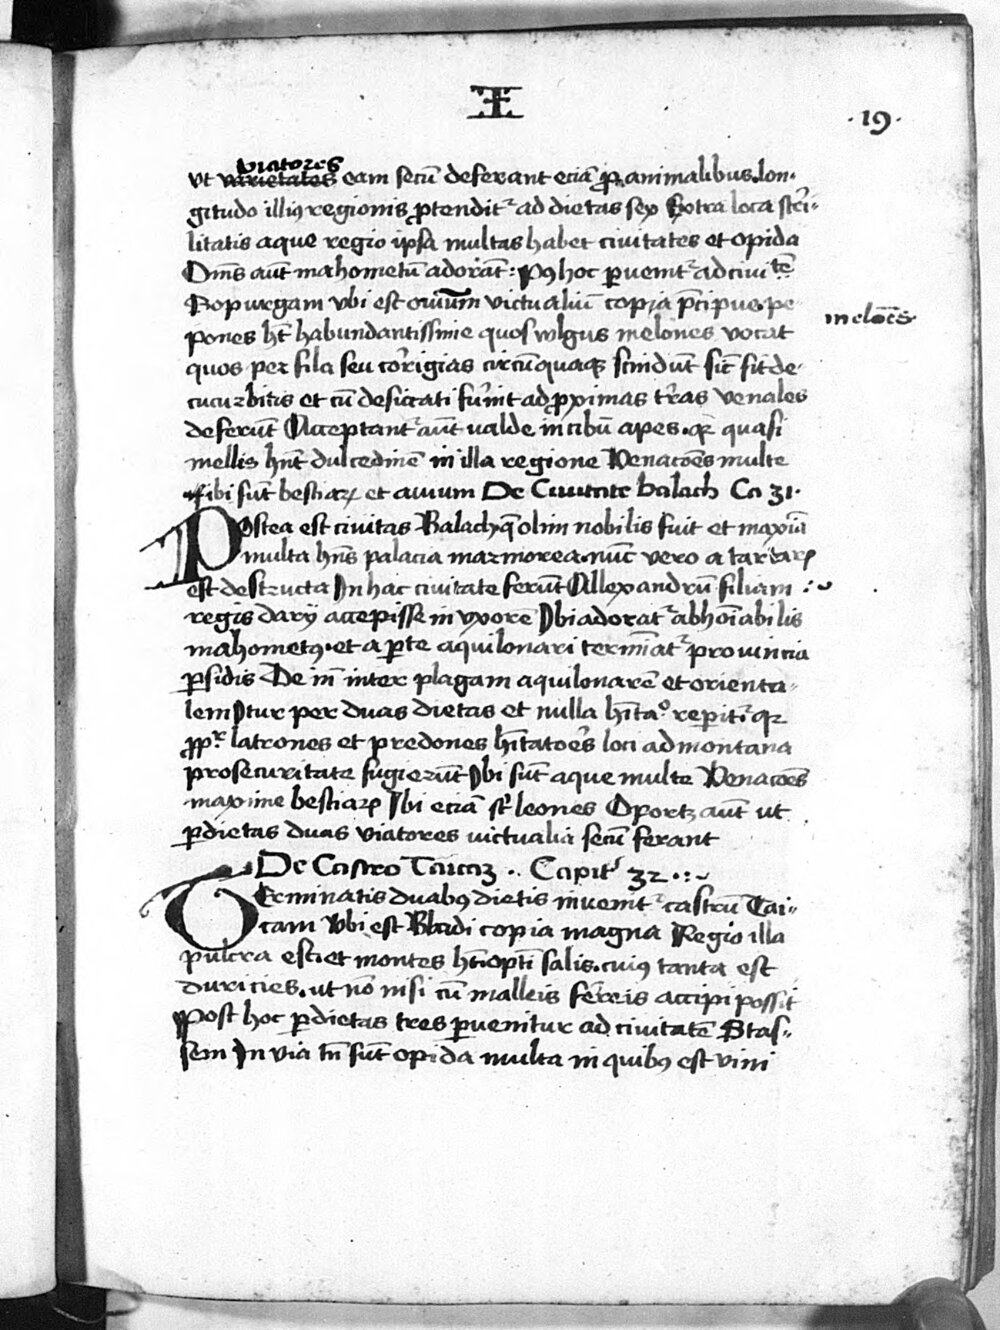 ·19·
viatores
ut varietates eam secū deferant eciā ꝓ animalibus. lon-
gitudo illiꝰ regionis ꝓtendit᷑ ad dietas sex Extra loca st̾i-
litatis aque regio ipsa multas habet ciuitates et opida
Om̄s aūt mahometū adorāt: Pꝰ hoc ꝑuenit᷑ ad ciuitē
Ropurgam vbi est oīuum victualiū copia p̄cipue pe
pones hn̄t habundantissime quos wlgus melones vocat
melōēs
quos per fila seu cor̾igias circūquaqꝫ scindūt sic̄ fit de
cucurbitis et cū desiccati fu̾int ad ꝓximas tr̾as venales
deferūt Acceptant᷑ aūt valde in cibū apes. qꝛ quasi
mellis hn̄t dulcedinē in illa regione Venacōēs multe
sibi sūt bestiaꝝ et auium De Ciuitate balach Ca 31·
Postea est ciuitas Balach q̄ olim nobilis fuit et maxīa
multa hn̄s palacia marmorea. nūc vero a tartaꝝ
est destructa In hac ciuitate ferūt Allexandrū filiam
regis darij accepisse in vxorē Ibi adorat᷑ abhoīabilis
mahometꝰ. et a ꝑte aquilonari termīat᷑ prouincia
ꝑsidis De in̄ inter plagam aquilonarē et orienta-
lem Itur per duas dietas et nulla hītaº reperit᷑ qꝛ
ꝓpr̄ latrones et predones hītatoēs loci ad montana
pro securitate fugierūt Ibi sūt aque multe Venacōēs
maxime bestiaꝝ Ibi eciā sūt leones Oportꝫ aūt ut
ꝑ dietas duas viatores victualia secū ferant
De Castro Taicaꝫ .. Capit᷑ 32·:~
Terminatis duabꝰ dietis inuenit᷑ castrū Tai-
cam Vbi est Bladi copia magna Regio illa
pulcra est et montes hꝫ opti salis. cuiꝰ tanta est
duricies. ut nō nisi cū malleis fe̾reis accipi possit
Post hoc ꝑ dietas tres ꝑuenitur ad ciuitatē Stas-
sem In via tn̄ sūt opida multa in quibꝰ est vini